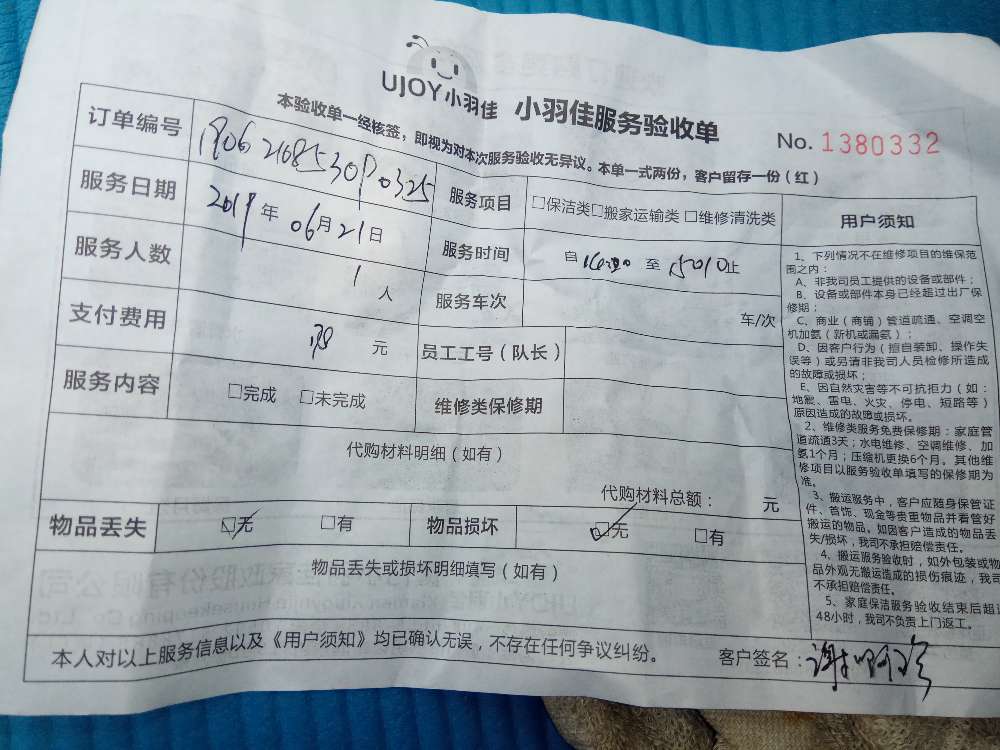 UJOY小羽佳 小羽佳服务验收单
No. 1380332
本验收单一经核签，即视为对本次服务验收无异议。本单一式两份，客户留存一份（红）
订单编号
服务项目 □保洁类□搬家运输类□维修清洗类
服务日期 2019年06月21日
服务时间 自 至 止
服务人数 1人
服务车次 车/次
支付费用 元
员工工号（队长）
服务内容 □完成 □未完成
维修类保修期
代购材料明细（如有）
代购材料总额： 元
物品丢失 ☑无 □有 物品损坏 ☑无 □有
物品丢失或损坏明细填写（如有）
用户须知
1、下列情况不在维修项目的维保范
围之内：
A、非我司员工提供的设备或部件；
B、设备或部件本身已经超过出厂保
修期；
C、商业（商铺）管道疏通、空调空
机加氨（新机或漏氨）；
D、因客户行为（擅自装卸、操作失
误等）或另请非我司人员检修所造成
的故障或损坏；
E、因自然灾害等不可抗拒力（如：
地震、雷电、火灾、停电、短路等）
原因造成的故障或损坏。
2、维修类服务免费保修期：家庭管
道疏通3天；水电维修、空调维修、加
氨1个月；压缩机更换6个月。其他维
修项目以服务验收单填写的保修期为
准。
3、搬运服务中，客户应随身保管证
件、首饰、现金等贵重物品并看管好
搬运的物品。如因客户造成的物品丢
失/损坏，我司不承担赔偿责任。
4、搬运服务验收时，如外包装或物
品外观无搬运造成的损伤痕迹，我司
不承担赔偿责任。
5、家庭保洁服务验收结束后超过
48小时，我司不负责上门返工。
本人对以上服务信息以及《用户须知》均已确认无误，不存在任何争议纠纷。 客户签名：